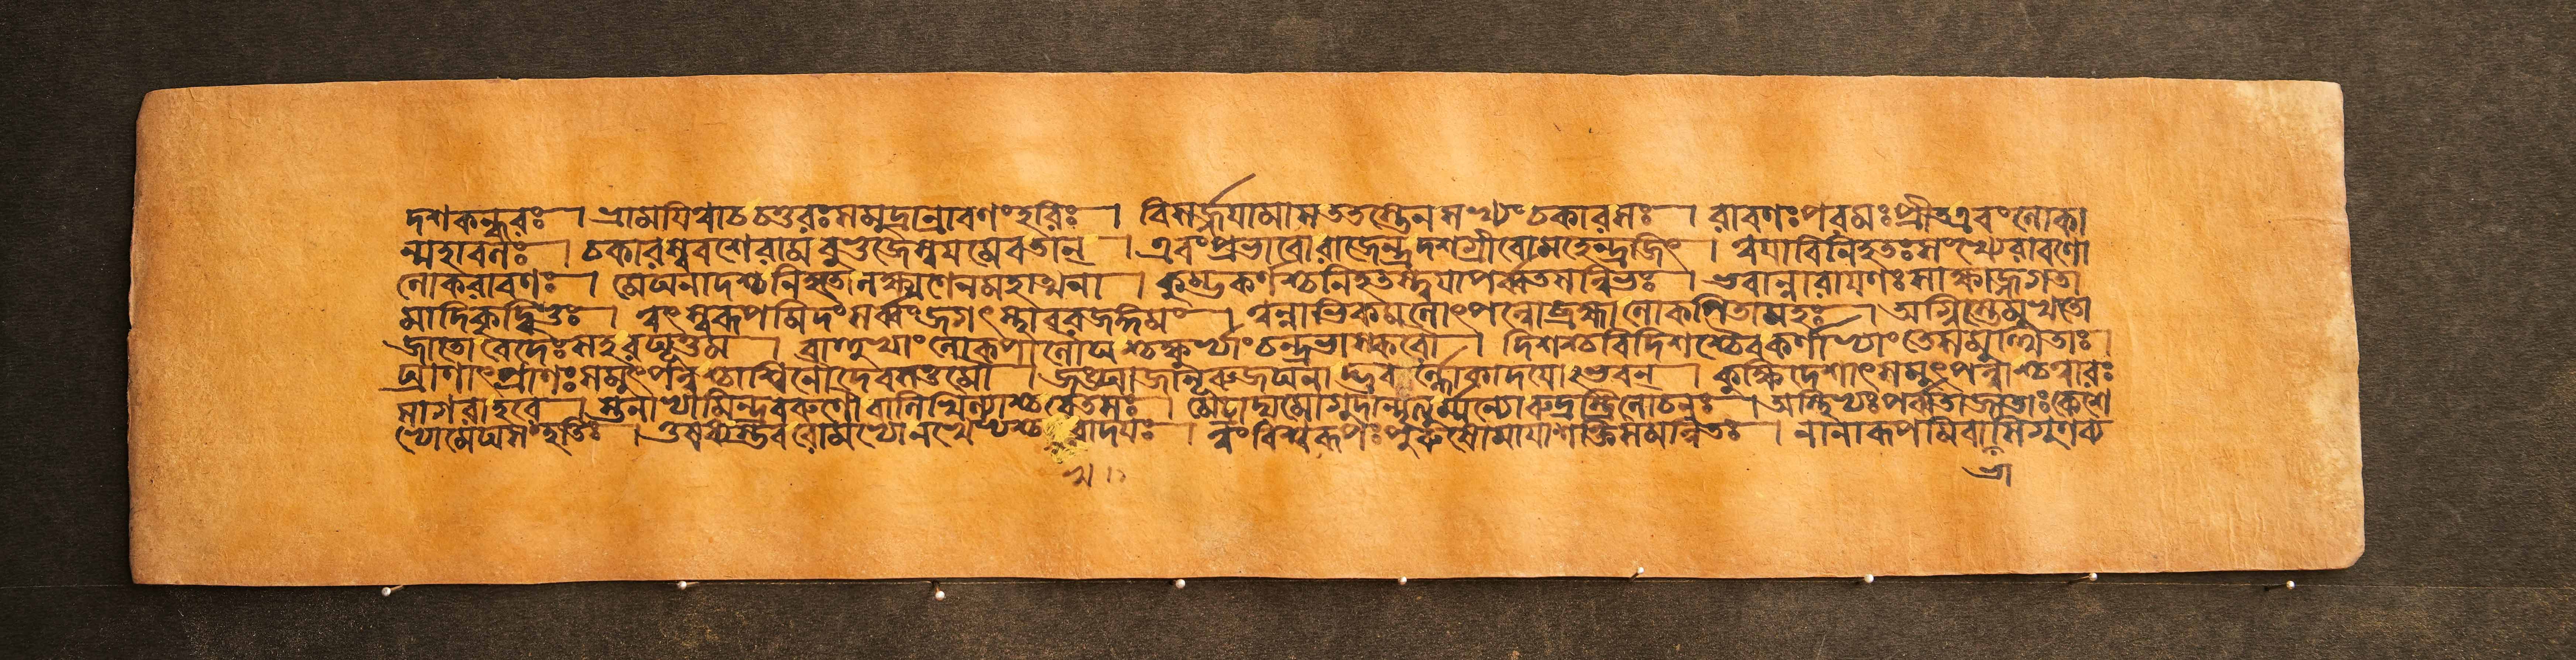 দশকন্ধরঃ । ভ্রাময়িত্বাচচতুরঃসমুদ্রান্রাবণংহরিঃ । বিসর্জ্জয়ামাসততস্তেনসখ্যংচকারসঃ । রাবণঃপরমঃপ্রীতএবংলোকা
ন্মহাবলঃ । চকারস্ববশেরামবুভুজেস্বয়মেবতান্ । এবংপ্রভাবোরাজেন্দ্রদশগ্রীবোমহেন্দ্রজিৎ । ত্বয়াবিনিহতঃসংখ্যেরাবণো
লোকরাবণঃ । মেঘনাদশ্চনিহতোলক্ষ্মণেনমহাত্মনা । কুম্ভকর্ণশ্চনিহতস্ত্বয়াপর্ব্বতসন্নিভঃ । ভবান্নারায়ণঃসাক্ষাজ্জগতা
মাদিকৃদ্বিভুঃ । ত্বৎস্বরূপমিদংসর্ব্বংজগৎস্থাবরজঙ্গমং । ত্বন্নাভিকমলোৎপন্নোব্রহ্মালোকপিতামহঃ । অগ্নিস্তেমুখতো
জাতোবেদৈঃসহরঘূত্তম । বাহুভ্যাংলোকপালৌঘশ্চক্ষুর্ভ্যাংচন্দ্রভাস্করৌ । দিশশ্চবিদিশশ্চৈবকর্ণাভ্যাংতেসমুত্থিতাঃ ।
ঘ্রাণাৎপ্রাণঃসমুৎপন্নশ্চাশ্বিনৌদেবসত্তমৌ । জঙ্ঘাজানূরুজঘনাদ্ভুবর্ল্লোকাদয়োঽভবন্ । কুক্ষিদেশাৎসমুৎপন্নাশ্চত্বারঃ
সাগরাহরে । স্তনাভ্যামিন্দ্রবরুণৌবালিখিল্যাশ্চরেতসঃ । মেঢ্রাদ্যমোগুদান্মৃত্যুর্ম্মন্যোরুদ্রস্ত্রিলোচনঃ । অস্থিভ্যঃপর্ব্বতাজাতাঃকেশে
ভ্যোমেঘসংহতিঃ । ওষধ্যস্তবরোমভ্যোনখেভ্যশ্চ রাদয়ঃ । ত্বংবিশ্বরূপঃপুরুষোমায়াশক্তিসমন্বিতঃ । নানারূপমিবাসিগুণব্য
ভা